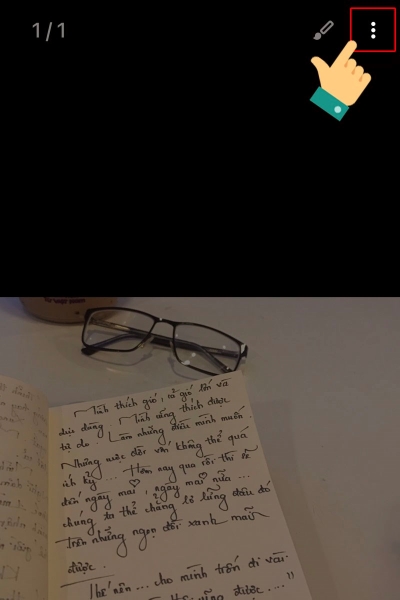 1/1
Mình thích gió, cả gió lớn và
dịu dàng. Mình cũng thích được
tự do. Làm những điều mình muốn.
Những cuộc đời vốn không thể quá
ích kỷ... Hôm nay qua rồi thì sẽ
đến ngày mai, ngày mai nữa...
chúng ta thể chẳng lẽ lửng đâu đó
trên những ngọn đồi xanh mãi
được.
Thế nên... cho mình trốn đi vài
được...."